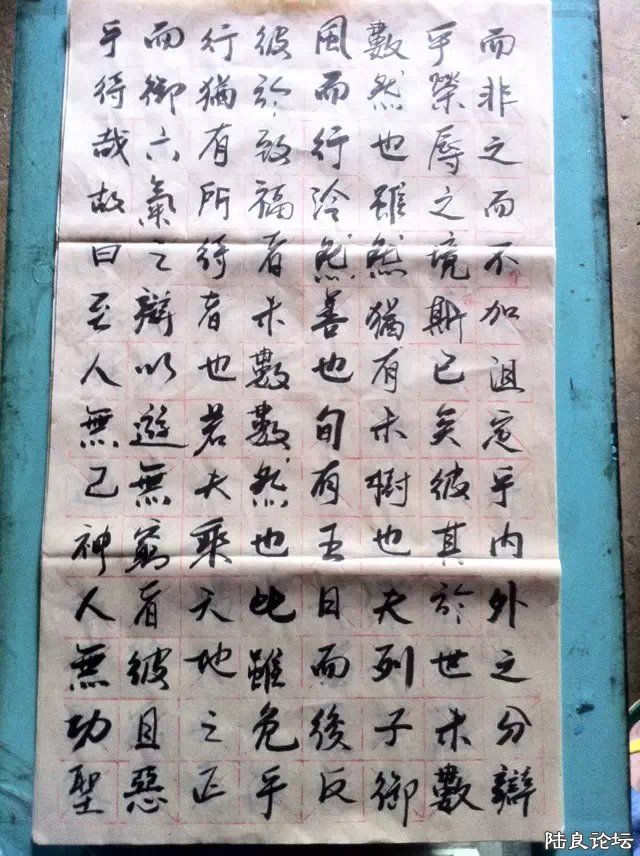 而非之而不加沮定乎内外之分辯
乎榮辱之境斯已矣彼其於世未數
數然也雖然猶有未樹也夫列子御
風而行泠然善也旬有五日而後反
彼於致福者未數數然也此雖免乎
行猶有所待者也若夫乘天地之正
而御六氣之辯以遊無窮者彼且惡
乎待哉故曰至人無己神人無功聖
陆良论坛